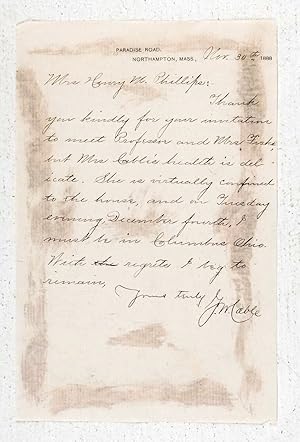 PARADISE ROAD,
NORTHAMPTON, MASS., Nov. 30th 1888
Mrs Henry M. Phillips:
Thank
you kindly for your invitation
to meet Professor and Mrs Fiske
but Mrs Cable's health is del-
icate. She is virtually confined
to the house, and on Tuesday
evening, December fourth, I
must be in Columbus Ohio.
With regrets I beg to
remain,
Yours truly
G. W. Cable